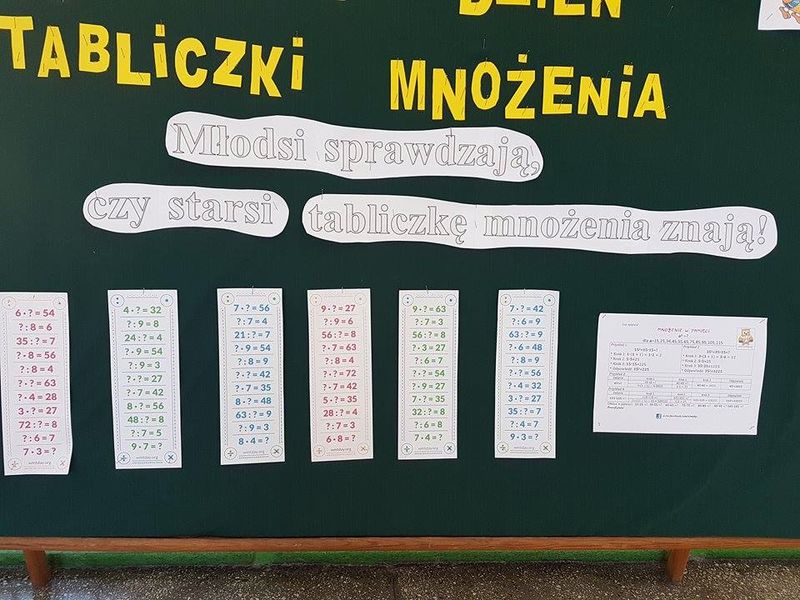 DZIEŃ
TABLICZKI MNOŻENIA
Młodsi sprawdzają,
czy starsi tabliczkę mnożenia znają!
6·?=54
?:8=6
35:?=7
?·8=56
?:8=4
?·7=63
?·4=28
3·?=27
72:?=8
?:6=7
7·3=?
4·?=32
?:9=8
24:?=4
?·9=54
?:9=3
?·?=27
?·7=42
8·?=56
48:?=8
?:7=5
9·7=?
wmtday.org
7·?=56
?:7=4
21:?=7
?·9=54
?:8=9
?·?=42
?·7=35
8·?=48
63:?=9
?:9=3
8·4=?
wmtday.org
9·?=27
?:9=6
56:?=8
?·7=63
?:8=4
?·?=72
?·7=42
5·?=35
28:?=4
?:7=3
6·8=?
wmtday.org
9·?=63
?:7=3
56:?=8
?·3=27
?:6=7
?·9=54
7·?=35
32:?=8
?:8=6
7·4=?
wmtday.org
7·?=42
?:6=9
63:?=9
?·8=64
?:7=8
?·?=56
?·4=32
3·?=27
35:?=7
?:7=4
9·3=?
wmtday.org
MNOŻENIE W PAMIĘCI